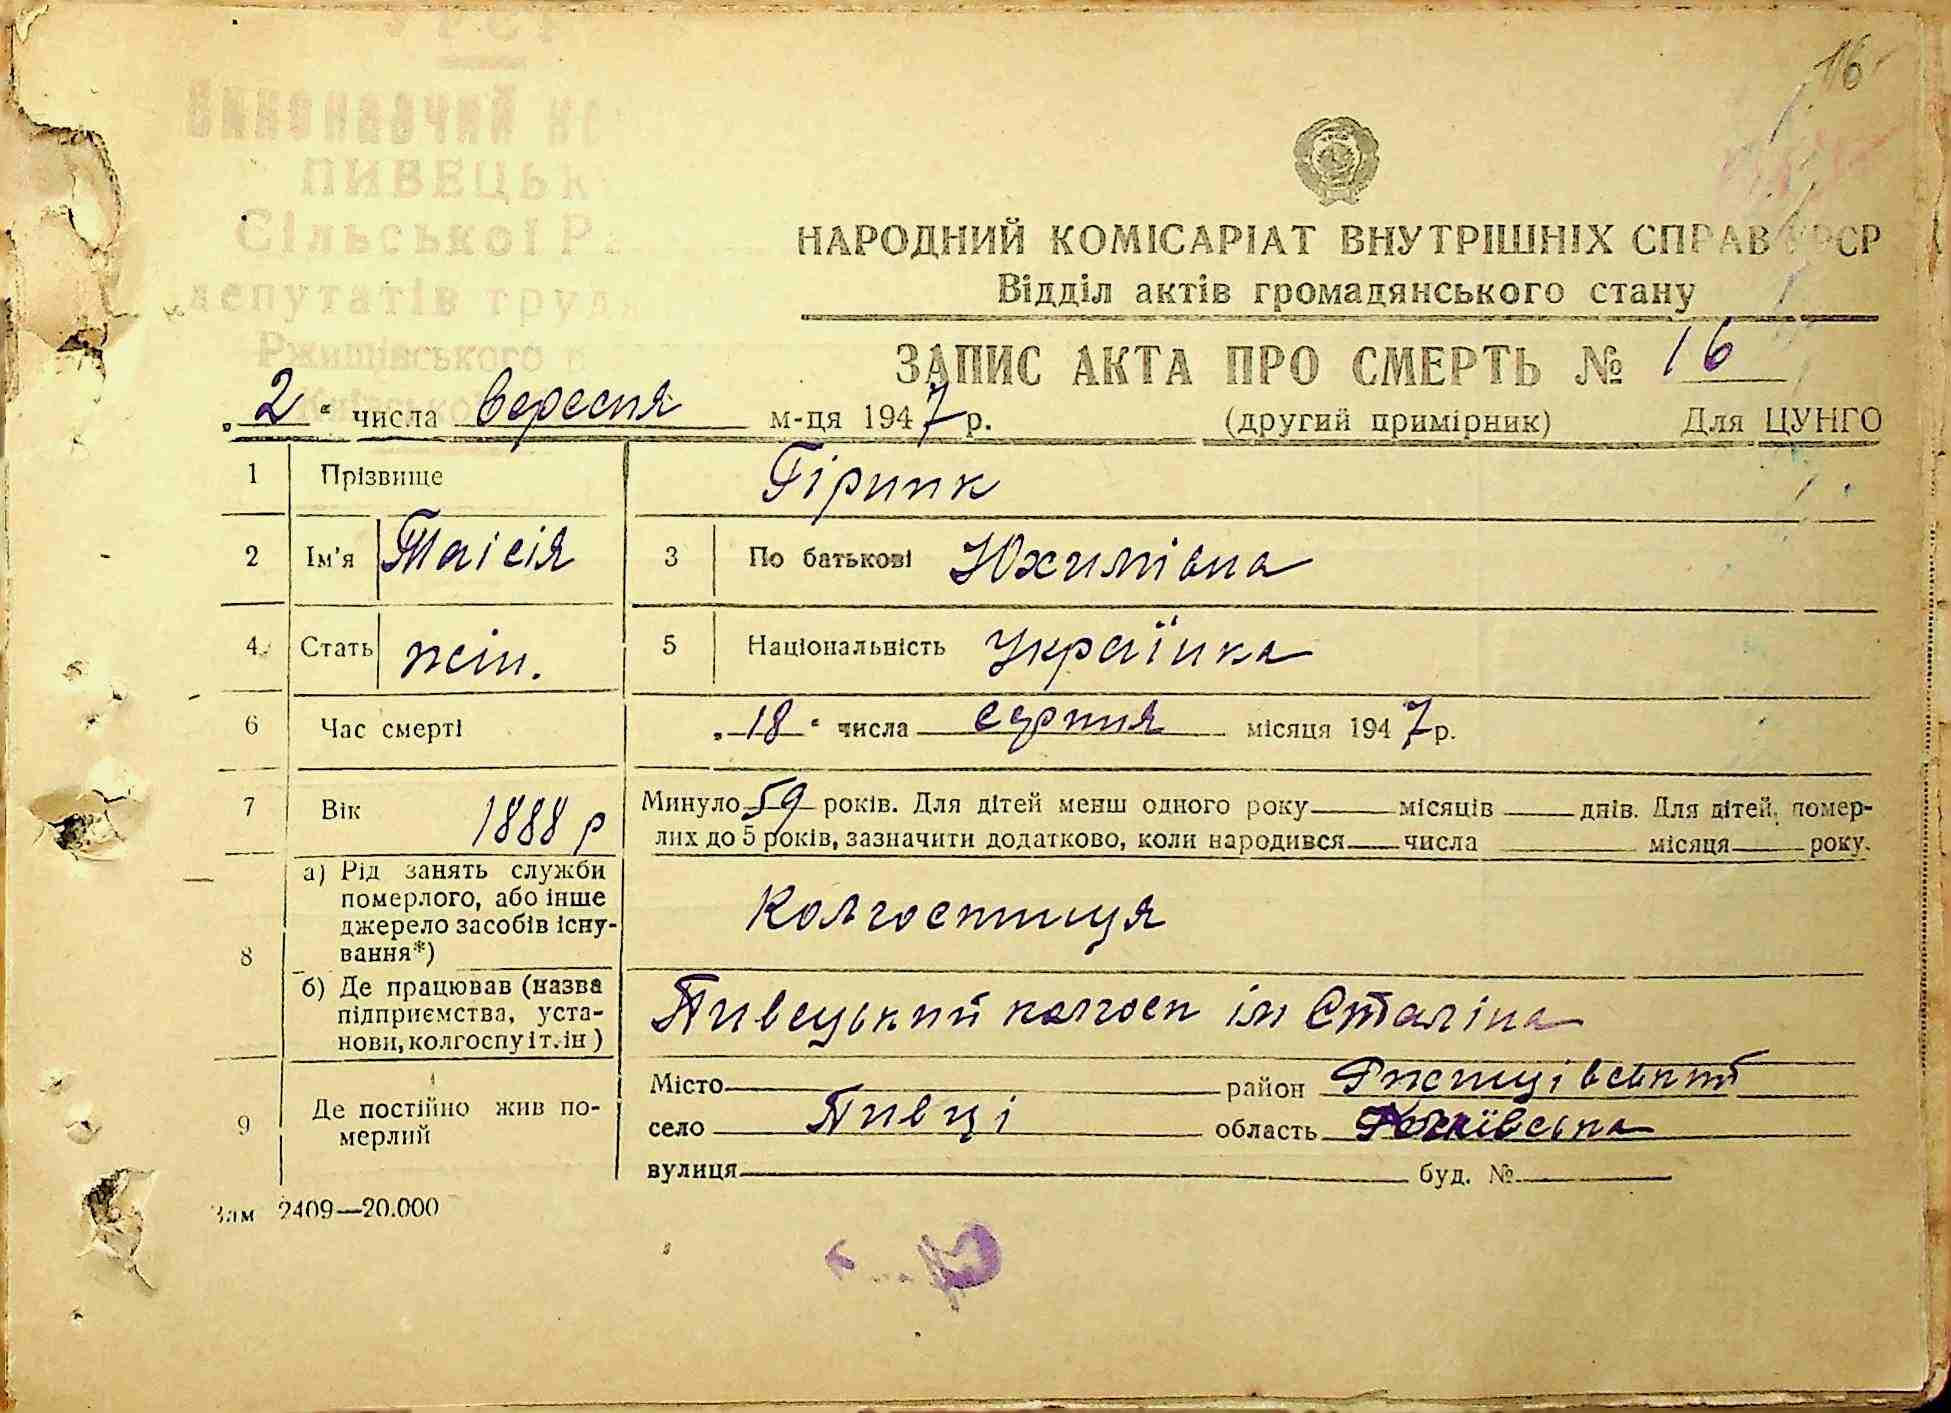 16
УРСР
Виконавчий
ПИВЕЦЬК
Сільської Р
депутатів труд
Ржищівського
НАРОДНИЙ КОМІСАРІАТ ВНУТРІШНІХ СПРАВ УРСР
Відділ актів громадянського стану
ЗАПИС АКТА ПРО СМЕРТЬ № 16
„2“ числа вересня м-ця 1947 р. (другий примірник) Для ЦУНГО
1 Прізвище
2 Ім'я Таісія 3 По батькові Юхимівна
4 Стать жін. 5 Національність Українка
6 Час смерті „18“ числа серпня місяця 1947 р.
7 Вік 1888 р Минуло 59 років. Для дітей менш одного року місяців днів. Для дітей, помер-
лих до 5 років, зазначити додатково, коли народився числа місяця року.
8 а) Рід занять служби
померлого, або інше
джерело засобів існу-
вання*)
Колгоспниця
б) Де працював (назва
підприємства, уста-
нови, колгоспу і т. ін)
Пивецький колгосп ім Сталіна
9 Де постійно жив по-
мерлий
Місто район Ржищівський
село Пивці область Київська
вулиця буд. №
Зам 2409—20.000